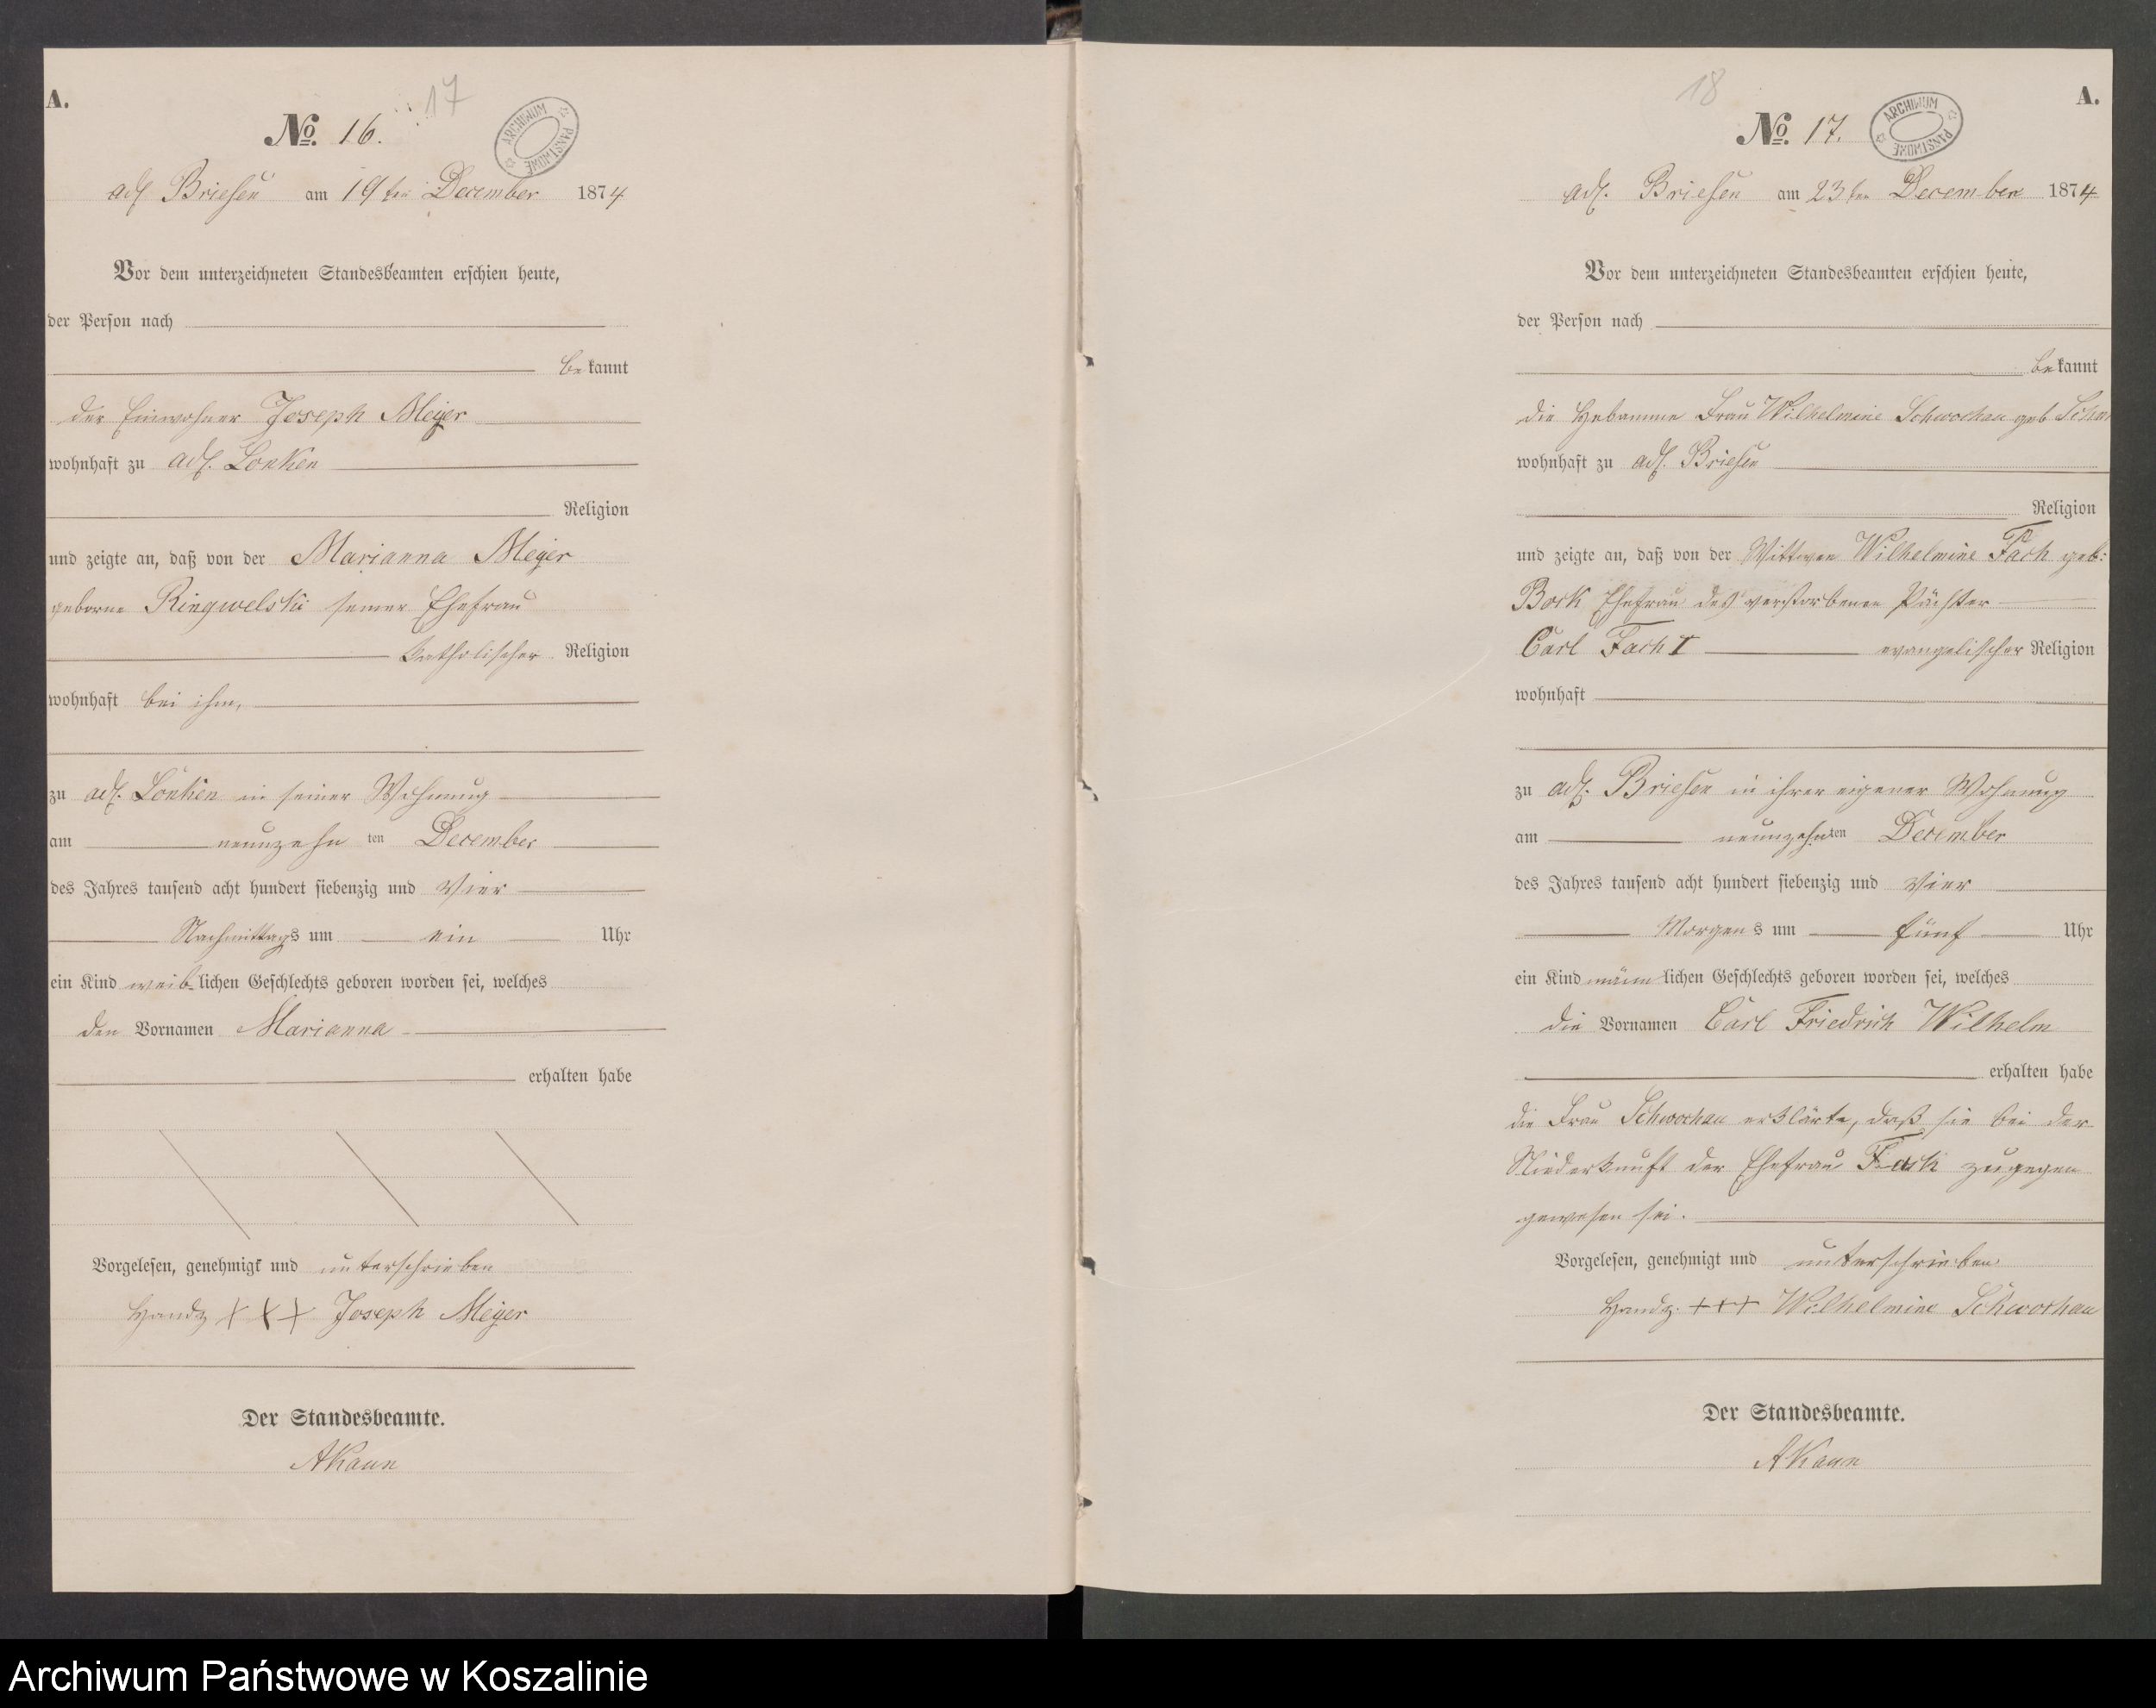 A.
17
No. 16.
ARCHIWUM PAŃSTWOWE
adl Briesen am 19ten December 1874
Vor dem unterzeichneten Standesbeamten erschien heute,
der Person nach
bekannt
der Einwohner Joseph Meyer
wohnhaft zu adl. Lonken
Religion
und zeigte an, daß von der Marianna Meyer
geborne Ringwelski seiner Ehefrau
katholischer Religion
wohnhaft bei ihm,
zu adl. Lonken in seiner Wohnung
am neunzehn ten December
des Jahres tausend acht hundert siebenzig und vier
Nachmittags um ein Uhr
ein Kind weiblichen Geschlechts geboren worden sei, welches
den Vornamen Marianna
erhalten habe
Vorgelesen, genehmigt und unterschrieben
Handz +++ Joseph Meyer
Der Standesbeamte.
AKaun
18
A.
No. 17.
ARCHIWUM PAŃSTWOWE
adl. Briesen am 23ten December 1874
Vor dem unterzeichneten Standesbeamten erschien heute,
der Person nach
bekannt
die Hebamme Frau Wilhelmine Schwochau geb
wohnhaft zu adl. Briesen
Religion
und zeigte an, daß von der Wittwen Wilhelmine Fach geb:
Bork Ehefrau des verstorbenen Pächter
Carl Fach I evangelischer Religion
wohnhaft
zu adl. Briesen in ihrer eigener Wohnung
am neunzehnten December
des Jahres tausend acht hundert siebenzig und vier
Morgens um fünf Uhr
ein Kind männlichen Geschlechts geboren worden sei, welches
die Vornamen Carl Friedrich Wilhelm
erhalten habe
die Frau Schwochau erklärte, daß sie bei der
Niederkunft der Ehefrau Fach zugegen
gewesen sei.
Vorgelesen, genehmigt und unterschrieben
Handz. +++ Wilhelmine Schwochau
Der Standesbeamte.
AKaun
Archiwum Państwowe w Koszalinie